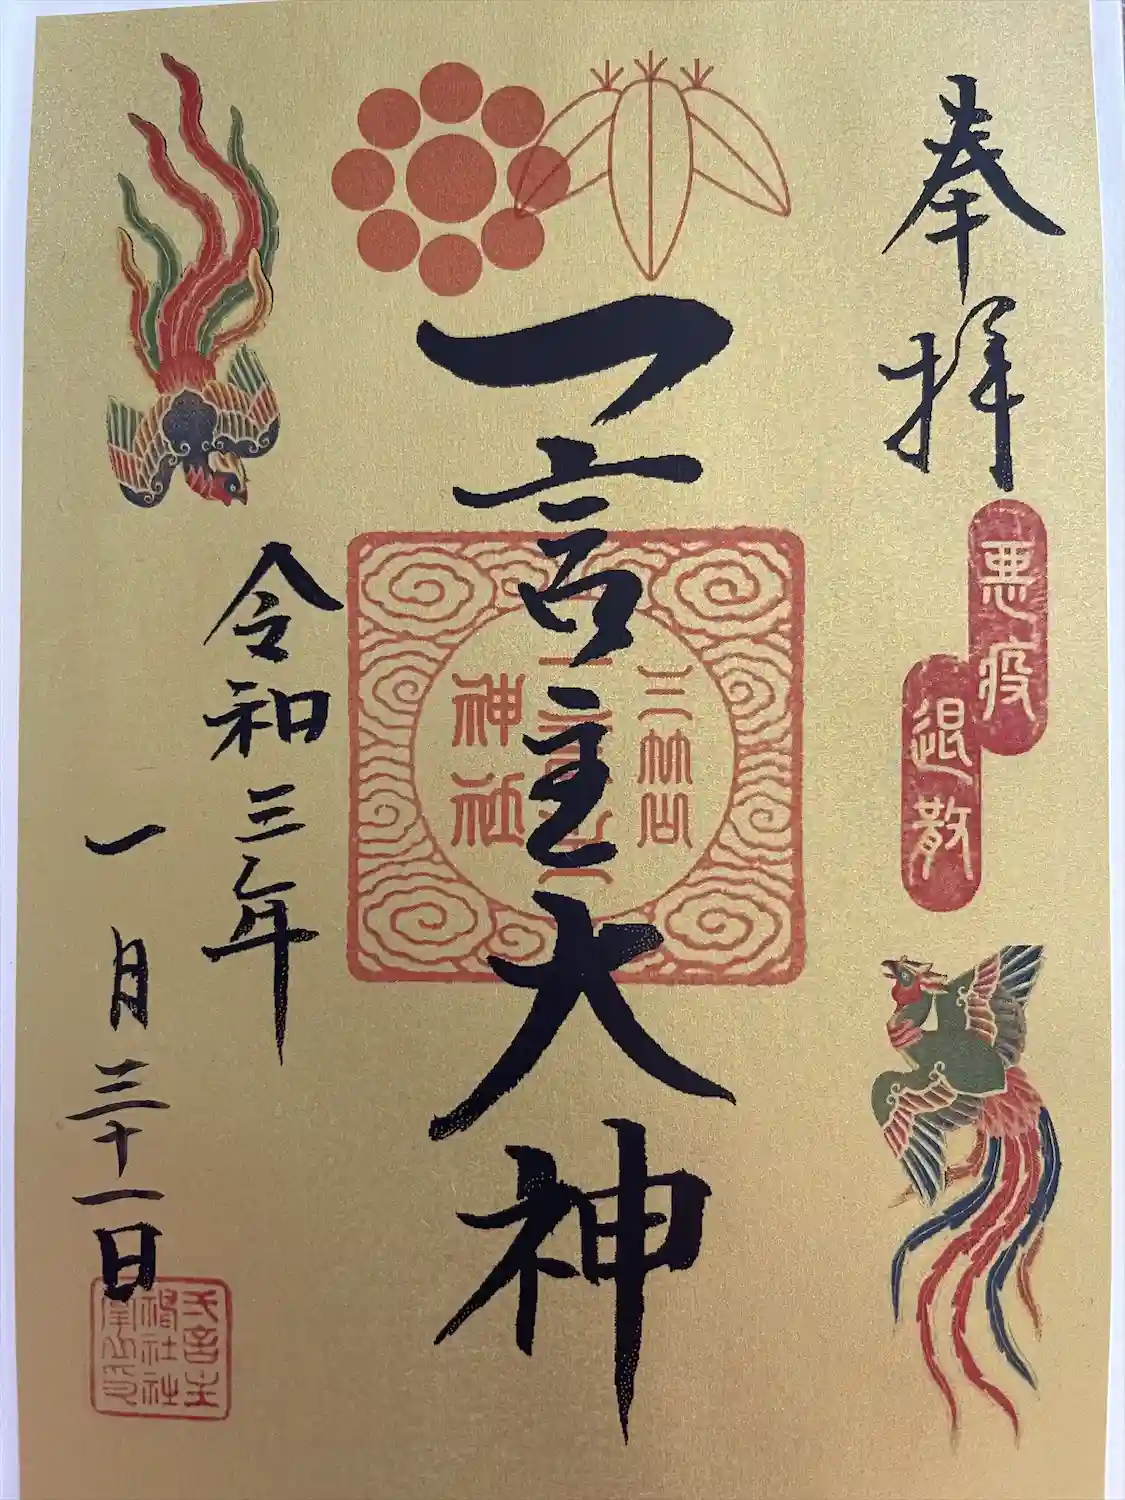 奉拝
悪疫
退散
一言主大神
三竹山
神社
令和三年
一月三十一日